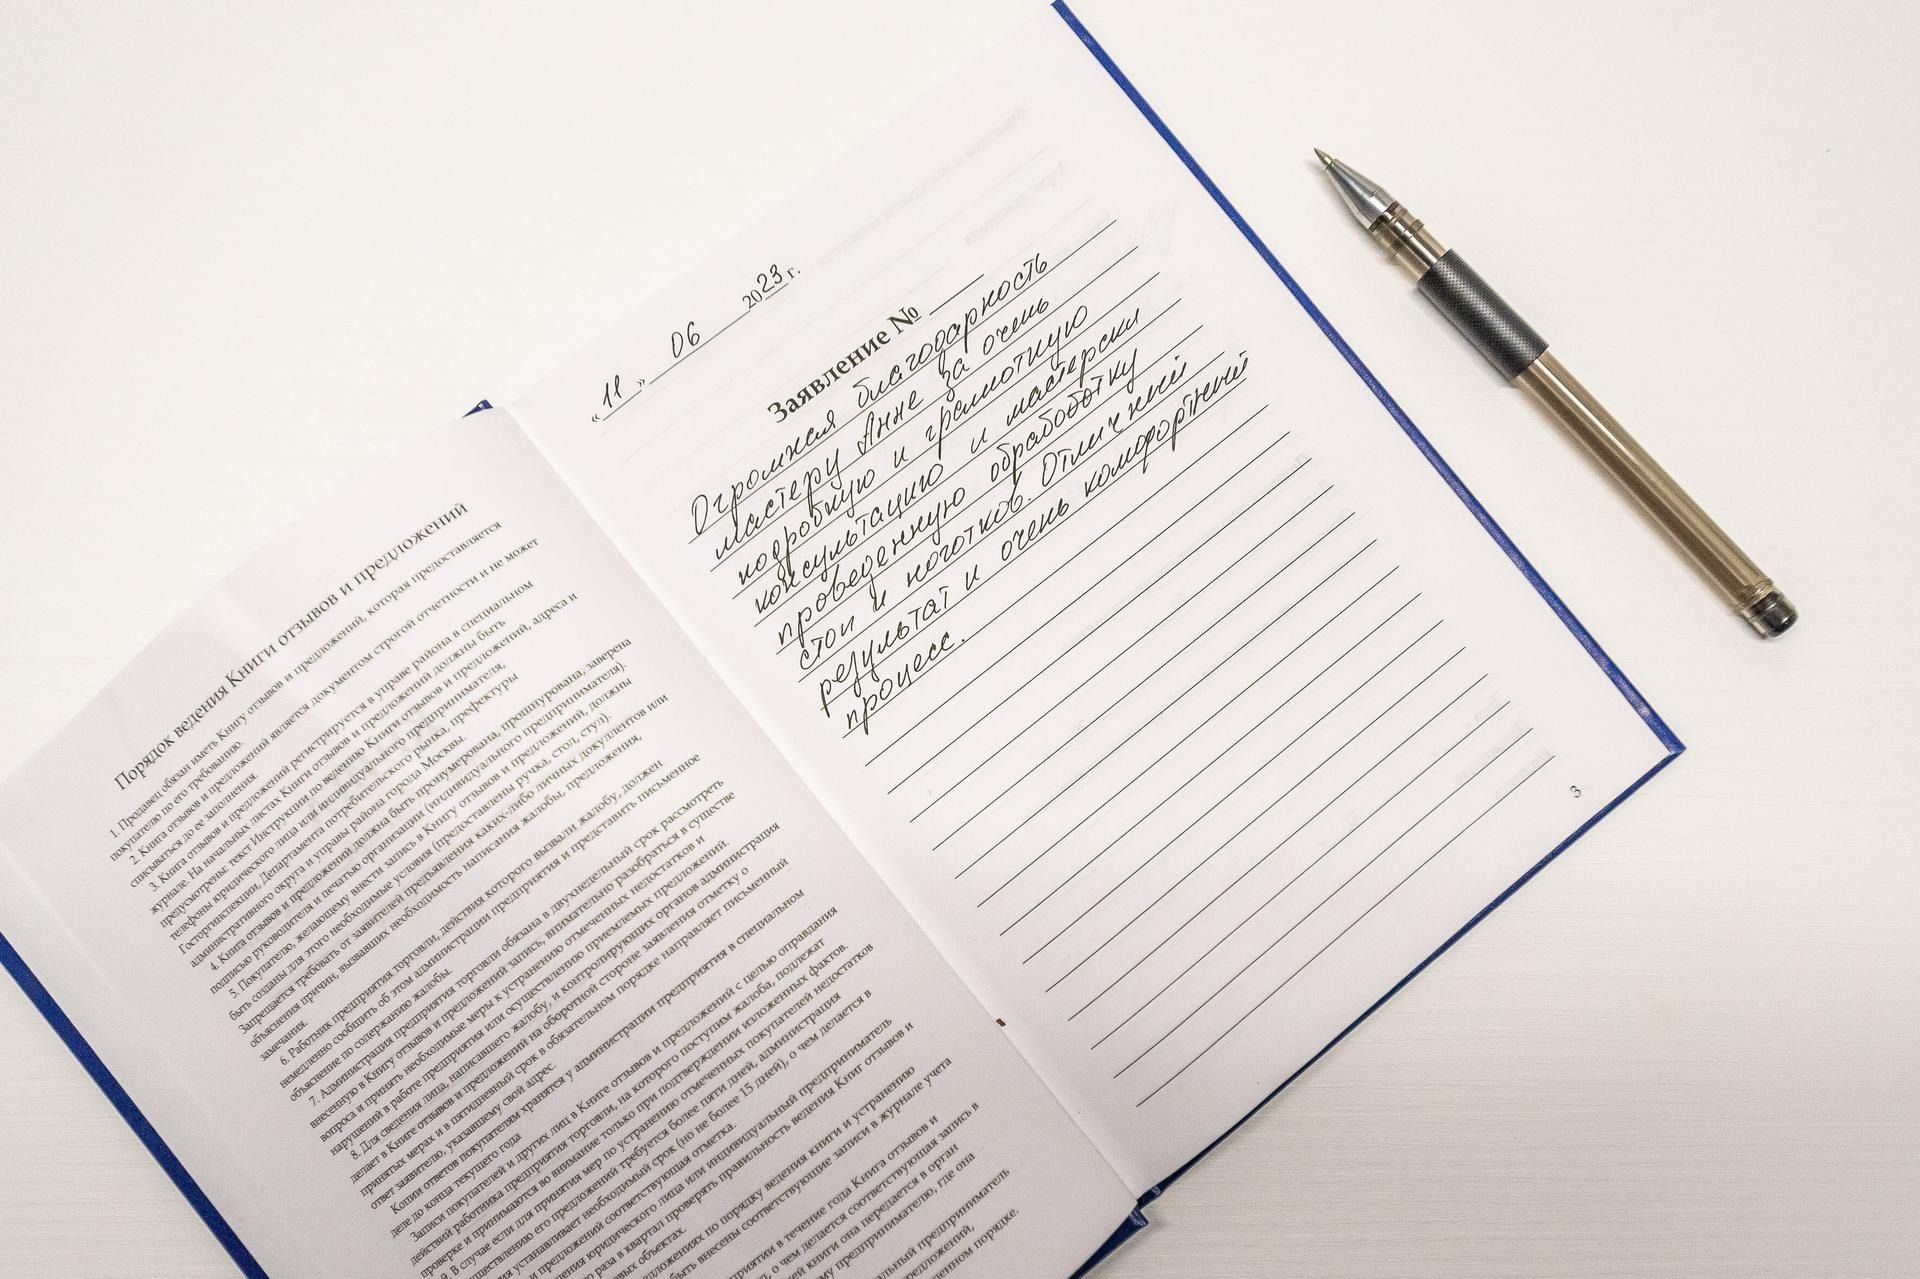 Порядок ведения Книги отзывов и предложений
1. Продавец обязан иметь Книгу отзывов и предложений, которая предоставляется
покупателю по его требованию.
2. Книга отзывов и предложений является документом строгой отчетности и не может
списываться до ее заполнения.
3. Книга отзывов и предложений регистрируется в управе района в специальном
журнале. На начальных листах Книги отзывов и предложений должны быть
предусмотрены: текст Инструкции по ведению Книги отзывов и предложений, адреса и
телефоны юридического лица или индивидуального предпринимателя,
Госторгинспекции, Департамента потребительского рынка, префектуры
административного округа и управы района города Москвы.
4. Книга отзывов и предложений должна быть пронумерована, прошнурована, заверена
подписью руководителя и печатью организации (индивидуального предпринимателя).
5. Покупателю, желающему внести запись в Книгу отзывов и предложений, должны
быть созданы для этого необходимые условия (предоставлены ручка, стол, стул).
Запрещается требовать от заявителей предъявления каких-либо личных документов или
объяснения причин, вызвавших необходимость написания жалобы, предложения,
замечания.
6. Работник предприятия торговли, действия которого вызвали жалобу, должен
немедленно сообщить об этом администрации предприятия и представить письменное
объяснение по содержанию жалобы.
7. Администрация предприятия торговли обязана в двухнедельный срок рассмотреть
внесенную в Книгу отзывов и предложений запись, внимательно разобраться в существе
вопроса и принять необходимые меры к устранению отмеченных недостатков и
нарушений в работе предприятия или осуществлению приемлемых предложений.
8. Для сведения лица, написавшего жалобу, и контролирующих органов администрация
делает в Книге отзывов и предложений на оборотной стороне заявления отметку о
принятых мерах и в пятидневный срок в обязательном порядке направляет письменный
ответ заявителю, указавшему свой адрес.
Копии ответов покупателям хранятся у администрации предприятия в специальном
деле до конца текущего года
Записи покупателей и других лиц в Книге отзывов и предложений с целью оправдания
действий работника предприятия торговли, на которого поступила жалоба, подлежат
проверке и принимаются во внимание только при подтверждении изложенных фактов.
9. В случае если для принятия мер по устранению отмеченных покупателей недостатков
осуществлению его предложений требуется более пяти дней, администрация
устанавливает необходимый срок (но не более 15 дней), о чем делается в
и предложений соответствующая отметка.
юридического лица или индивидуальный предприниматель
раза в квартал проверять правильность ведения Книг отзывов и
объектах.
предложениях по порядку ведения книги и устранению
быть внесены соответствующие записи в журнале учета
в течение года Книга отзывов и
о чем делается соответствующая запись в
книги она передается в орган
предпринимателю, где она
предприниматель
предложений,
порядке.
«11» 06 2023 г.
Заявление №
Огромная благодарность
мастеру Анне за очень
подробную и грамотную
консультацию и мастерски
проведенную обработку
стоп и ноготков. Отличный
результат и очень комфортный
процесс.
3